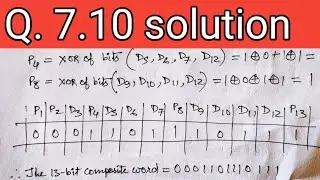 Q. 7.10 solution
P4 = XOR of bits (D5, D6, D7, D12) = 1⊕0+1⊕1 =
P8 = XOR of bits (D9, D10, D11, D12) = 1⊕0⊕1⊕1 =
∴ P1 P2 D3 P4 D5 D6 D7 P8 D9 D10 D11 D12 P13
0 0 0 1 1 0 1 1 1 0 1 1 1
∴ The 13-bit composite word = 0001101110111